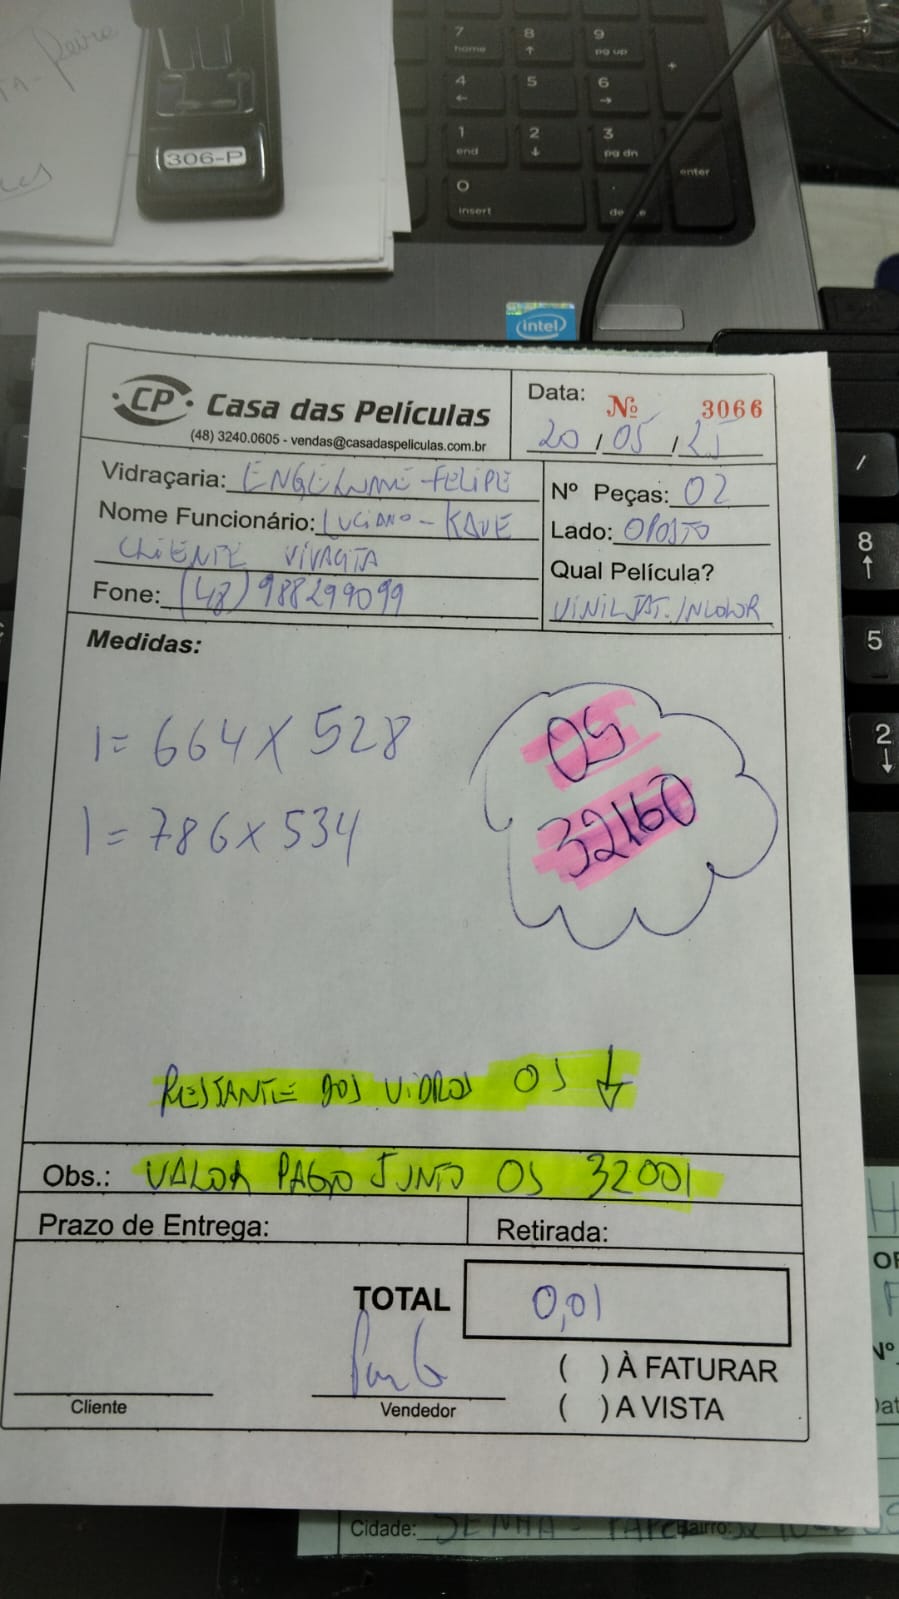 306-P
7 home
8
9 pg up
+
4
5
6
1 end
2
3 pg dn
enter
0 insert
intel
CP Casa das Películas
(48) 3240.0605 - vendas@casadaspeliculas.com.br
Data: Nº 3066
20/05/25
Vidraçaria: FELIPE
Nº Peças: 02
Nome Funcionário: LUCIANO -
Lado: OPOSTO
CLIENTE
Qual Película?
Fone: (48) 988299099
VINIL JAT. INCOLOR
Medidas:
1= 664 X 528
1= 786 X 534
OS
32160
RESTANTE DOS VIDROS OS ↓
Obs.: VALOR PAGO JUNTO OS 32001
Prazo de Entrega:
Retirada:
TOTAL 0,01
( ) À FATURAR
( ) A VISTA
Cliente
Vendedor
/
8
5
2
Cidade:
Bairro: